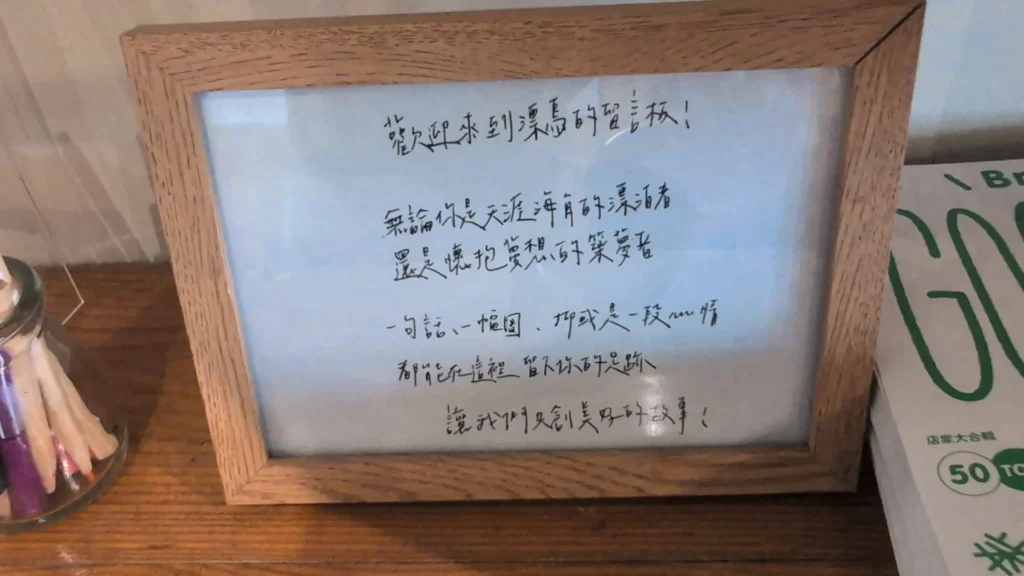 歡迎來到漂鳥的留言板!
無論你是天涯海角的漂泊者
還是懷抱夢想的築夢者
一句話、一幅圖、抑或是一段心情
都能在這裡留下你的足跡、
讓我們共創美好的故事!
Br
GO
店家大合輯
50
TO